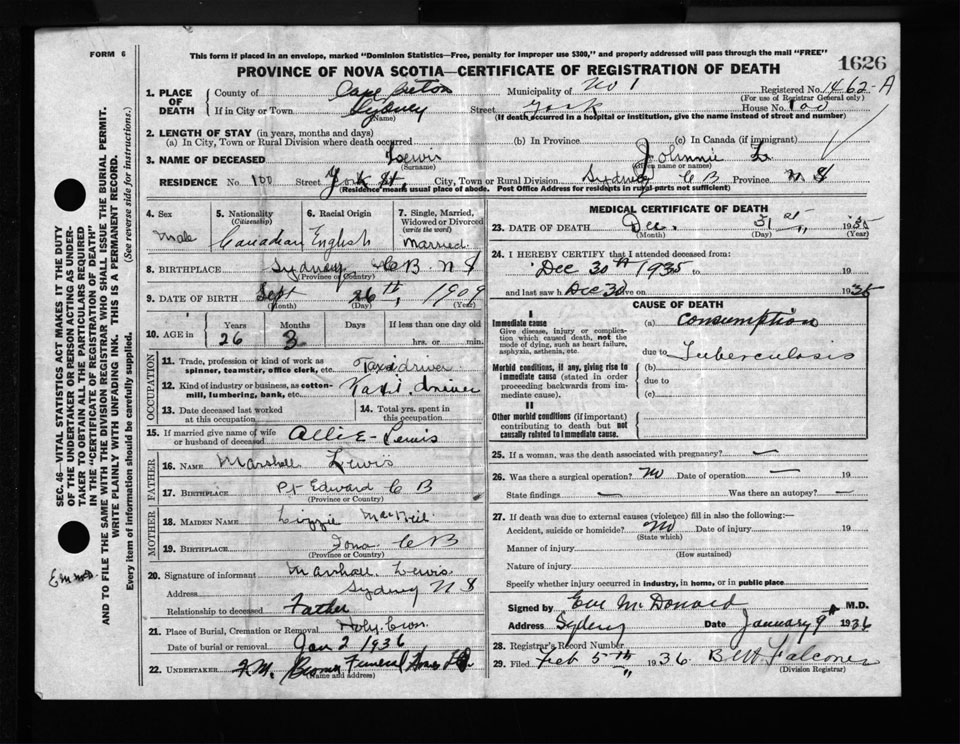 FORM 6
This form if placed in an envelope, marked "Dominion Statistics—Free, penalty for improper use $300," and properly addressed will pass through the mail "FREE"
1626
PROVINCE OF NOVA SCOTIA—CERTIFICATE OF REGISTRATION OF DEATH
1. PLACE OF DEATH
County of Cape Breton Municipality of No 1 Registered No. 1462-A
(For use of Registrar General only)
If in City or Town Sydney Street York House No. 100
(Name) (If death occurred in a hospital or institution, give the name instead of street and number)
2. LENGTH OF STAY (in years, months and days)
(a) In City, Town or Rural Division where death occurred (b) In Province (c) In Canada (if immigrant)
3. NAME OF DECEASED Lewis Johnnie
(Surname) (Given name or names)
RESIDENCE No. 100 Street York St. City, Town or Rural Division Sydney C B Province N S
(Residence means usual place of abode. Post Office Address for residents in rural parts not sufficient)
4. Sex
Male
5. Nationality
(Citizenship)
Canadian
6. Racial Origin
English
7. Single, Married, Widowed or Divorced
(write the word)
Married.
8. BIRTHPLACE Sydney C B. N S
(Province or Country)
9. DATE OF BIRTH Sept 26th, 1909
(Month) (Day) (Year)
10. AGE in
Years Months Days If less than one day old
26 3 hrs. or min.
OCCUPATION
11. Trade, profession or kind of work as spinner, teamster, office clerk, etc. Taxi driver
12. Kind of industry or business, as cotton-mill, lumbering, bank, etc. Taxi driver
13. Date deceased last worked at this occupation
14. Total yrs. spent in this occupation
15. If married give name of wife or husband of deceased Allie Lewis
FATHER
16. NAME Marshall Lewis
17. BIRTHPLACE Pt Edward C B
(Province or Country)
MOTHER
18. MAIDEN NAME Lizzie MacNeil
19. BIRTHPLACE Iona C B
(Province or Country)
20. Signature of informant Marshall Lewis
Address Sydney N S
Relationship to deceased Father
21. Place of Burial, Cremation or Removal Holy Cross
Date of burial or removal Jan 2 1936
22. UNDERTAKER Funeral Home
(Name and address)
MEDICAL CERTIFICATE OF DEATH
23. DATE OF DEATH Dec. 31st, 1935
(Month) (Day) (Year)
24. I HEREBY CERTIFY that I attended deceased from:
Dec 30th 1935 to 19
and last saw h alive on Dec 30 1935
CAUSE OF DEATH
I
Immediate cause
Give disease, injury or complication which caused death, not the mode of dying, such as heart failure, asphyxia, asthenia, etc.
(a) Consumption
due to Tuberculosis
Morbid conditions, if any, giving rise to immediate cause (stated in order proceeding backwards from immediate cause).
(b)
due to
(c)
II
Other morbid conditions (if important) contributing to death but not causally related to immediate cause.
25. If a woman, was the death associated with pregnancy? —
26. Was there a surgical operation? No Date of operation — 19
State findings — Was there an autopsy? —
27. If death was due to external causes (violence) fill in also the following:—
Accident, suicide or homicide? No Date of injury 19
(State which)
Manner of injury
(How sustained)
Nature of injury
Specify whether injury occurred in industry, in home, or in public place
Signed by McDonald M.D.
Address Sydney Date January 9th 1936
28. Registrar's Record Number
29. Filed Feb 5th, 1936. Falconer
(Division Registrar)
SEC. 46—VITAL STATISTICS ACT MAKES IT THE DUTY
OF THE UNDERTAKER OR PERSON ACTING AS UNDER-
TAKER TO OBTAIN ALL THE PARTICULARS REQUIRED
IN THE "CERTIFICATE OF REGISTRATION OF DEATH"
AND TO FILE THE SAME WITH THE DIVISION REGISTRAR WHO SHALL ISSUE THE BURIAL PERMIT.
WRITE PLAINLY WITH UNFADING INK. THIS IS A PERMANENT RECORD.
Every item of information should be carefully supplied. (See reverse side for instructions.)